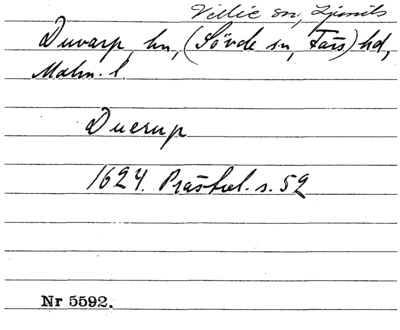 Vellie sn, Ljunits
Duvarp, hn, (Sövde sn, Färs) hd,
Malm. l.
Duerup
1624. Prästrel. s. 52
Nr 5592.